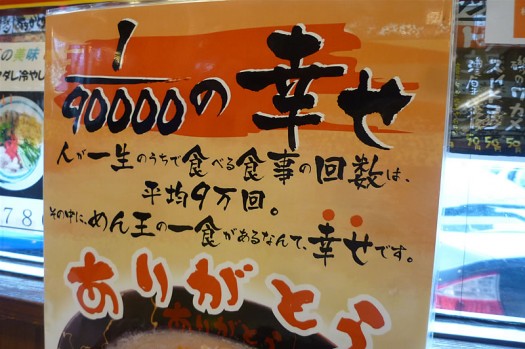 1/90000の幸せ
人が一生のうちで食べる食事の回数は、
平均9万回。
その中に、めん王の一食があるなんて、幸せです。
ありがとう
ありがとう
の美味
ダレ冷やし
78